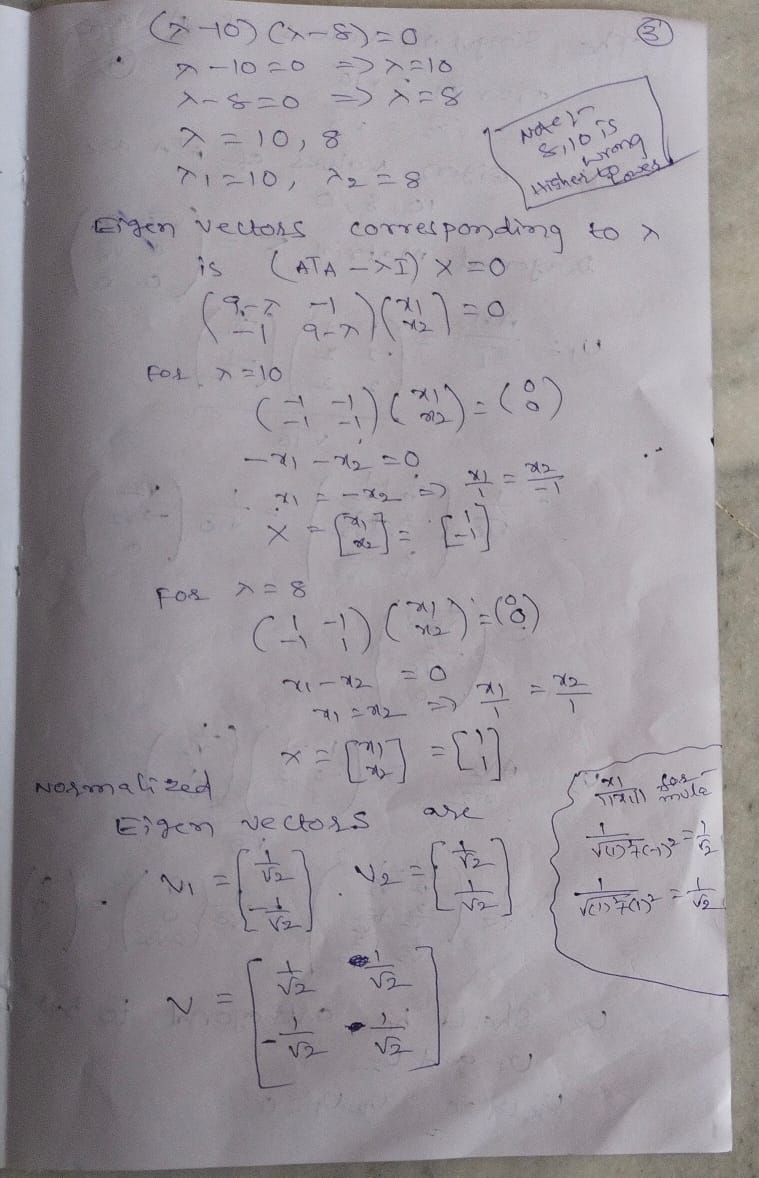 (λ-10) (λ-8) = 0
③
λ-10=0 => λ=10
λ-8=0 => λ=8
λ = 10, 8
λ1=10, λ2=8
Note:-
8,10 is
wrong
Higher to lower
Eigen vectors corresponding to λ
is (ATA - λI) X = 0
(9-λ -1) (x1) = 0
(-1 9-λ) (x2)
For λ=10
(-1 -1) (x1) = (0)
(-1 -1) (x2) (0)
-x1 - x2 = 0
x1 = -x2 => x1/1 = x2/-1
X = [x1] = [1]
[x2] [-1]
For λ=8
(1 -1) (x1) = (0)
(-1 1) (x2) (0)
x1 - x2 = 0
x1 = x2 => x1/1 = x2/1
X = [x1] = [1]
[x2] [1]
Normalized
Eigen vectors are
V1 = [1/√2] V2 = [1/√2]
[-1/√2] [1/√2]
x1/||x1|| for
mula
1/√(1)²+(-1)² = 1/√2
1/√(1)²+(1)² = 1/√2
V = [1/√2 1/√2]
[-1/√2 1/√2]